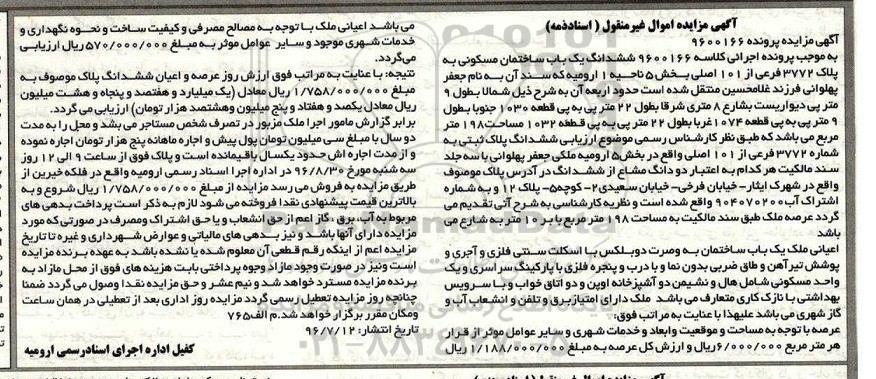 آگهی مزایده اموال غیرمنقول ( اسنادذمه)
آگهی مزایده پرونده ۹۶۰۰۱۶۶
به موجب پرونده اجرائی کلاسه ۹۶۰۰۱۶۶ ششدانگ یک باب ساختمان مسکونی به
پلاک ۳۷۷۲ فرعی از ۱۰۱ اصلی بخش ۵ ناحیه ۱ ارومیه که سند آن به نام جعفر
پهلوانی فرزند غلامحسین منتقل شده است حدود اربعه آن به شرح ذیل شمالا بطول ۹
متر پی دیواریست بشارع ۸ متری شرقا بطول ۲۲ متر پی به پی قطعه ۱۰۳۰ جنوبا بطول
۹ متر پی به پی قطعه ۱۰۷۴ غربا بطول ۲۲ متر پی به پی قطعه ۱۰۳۲ مساحت ۱۹۸ متر
مربع می باشد که طبق نظر کارشناس رسمی موضوع ارزیابی ششدانگ پلاک ثبتی به
شماره ۳۷۷۲ فرعی از ۱۰۱ اصلی واقع در بخش ۵ ارومیه ملکی جعفر پهلوانی با سه جلد
سند مالکیت هر کدام به اعتبار دو دانگ مشاع از ششدانگ در آدرس پلاک موصوف
واقع در شهرک ایثار- خیابان فرخی- خیابان سعیدی۲- کوچه۵- پلاک ۱۲ و به شماره
اشتراک آب ۹۰۴۰۷۰۲۰۰ واقع شده است و نظریه کارشناسی به شرح آتی تقدیم می
گردد عرصه ملک طبق سند مالکیت به مساحت ۱۹۸ متر مربع با بر ۱۰ متر به شارع می
باشد
اعیانی ملک یک باب ساختمان به وصرت دوبلکس با اسکلت سنتی فلزی و آجری و
پوشش تیر آهن و طاق ضربی بدون نما و با درب و پنجره فلزی با پارکینگ سراسری و یک
واحد مسکونی شامل هال و نشیمن دو آشپزخانه اوپن و دو اتاق خواب و با سرویس
بهداشتی با نازک کاری متعارف می باشد ملک دارای امتیاز برق و تلفن و انشعاب آب و
گاز شهری می باشد علیهذا با عنایت به مراتب فوق:
عرصه با توجه به مساحت و موقعیت وابعاد و خدمات شهری و سایر عوامل موثر از قرار
هر متر مربع ۶/۰۰۰/۰۰۰ریال و ارزش کل عرصه به مبلغ ۱/۱۸۸/۰۰۰/۰۰۰ ریال
می باشد اعیانی ملک با توجه به مصالح مصرفی و کیفیت ساخت و نحوه نگهداری و
خدمات شهری موجود و سایر عوامل موثر به مبلغ ۵۷۰/۰۰۰/۰۰۰ ریال ارزیابی
میگردد.
نتیجه: با عنایت به مراتب فوق ارزش روز عرصه و اعیان ششدانگ پلاک موصوف به
مبلغ ۱/۷۵۸/۰۰۰/۰۰۰ ریال معادل (یک میلیارد و هفتصد و پنجاه و هشت میلیون
ریال معادل یکصد و هفتاد و پنج میلیون وهشتصد هزار تومان) ارزیابی می گردد.
برابر گزارش مامور اجرا ملک مزبور در تصرف شخص مستاجر می بشد و محل را به مدت
دو سال با مبلغ سی میلیون تومان پول پیش و اجاره ماهانه پنج هزار تومان اجاره نموده
و از مدت اجاره اش حدود یکسال باقیمانده است و پلاک فوق از ساعت ۹ الی ۱۲ روز
سه شنبه مورخ ۹۶/۸/۳۰ در اداره اجرا اسناد رسمی ارومیه واقع در فلکه خیرین از
طریق مزایده به فروش می رسد مزایده از مبلغ ۱/۷۵۸/۰۰۰/۰۰۰ ریال شروع و به
بالاترین قیمت پیشنهادی نقدا فروخته می شود لازم به ذکر است پرداخت بدهی های
مربوط به آب، برق ، گاز اعم از حق انشعاب و یا حق اشتراک ومصرف در صورتی که مورد
مزایده دارای آنها باشد و نیز بدهی های مالیاتی و عوارض شهرداری و غیره تا تاریخ
مزایده اعم از اینکه رقم قطعی آن معلوم شده یا نشده باشد به عهده برنده مزایده
است ونیز در صورت وجود مازاد وجوه پرداختی بابت هزینه های فوق از محل مازاد به
برنده مزایده مسترد خواهد شد و نیم عشر و حق مزایده نقدا وصول می گردد ضمنا
چنانچه روز مزایده تعطیل رسمی گردد مزایده روز اداری بعد از تعطیلی در همان ساعت
ومکان مقرر برگزار خواهد شد.م الف ۷۶۵
تاریخ انتشار: ۹۶/۷/۱۲
کفیل اداره اجرای اسنادرسمی ارومیه